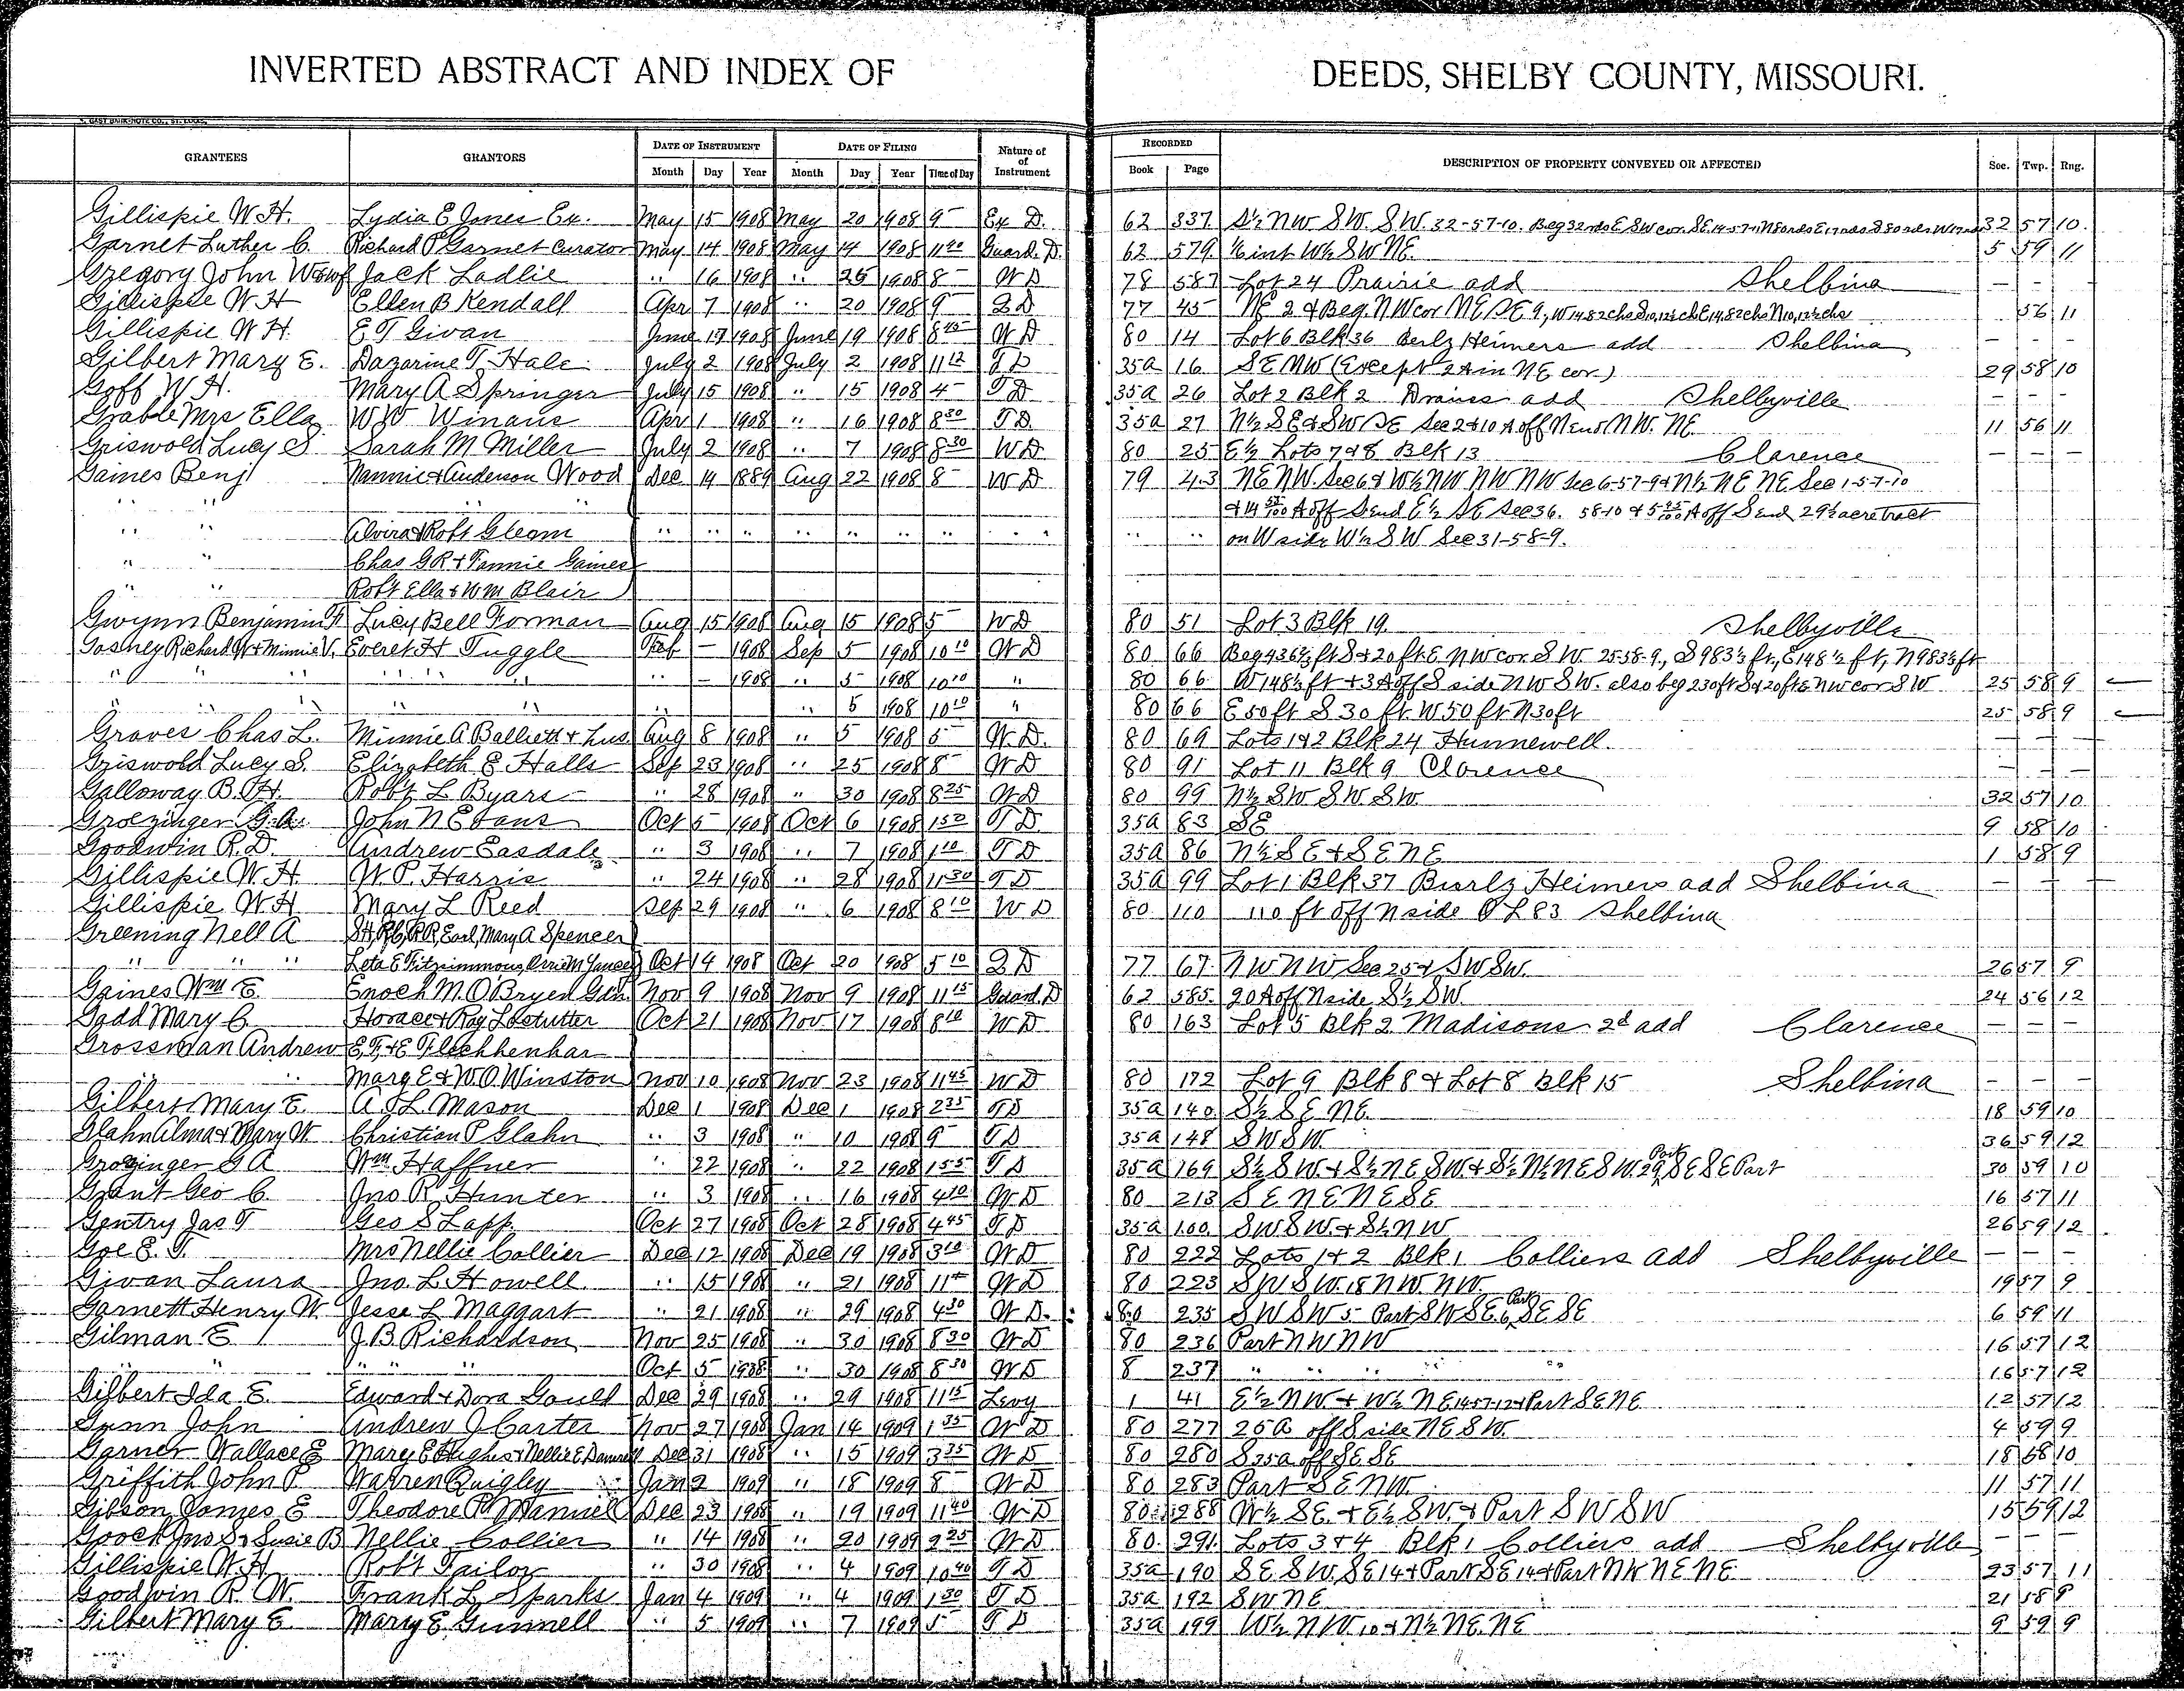 INVERTED ABSTRACT AND INDEX OF DEEDS, SHELBY COUNTY, MISSOURI.
GRANTEES GRANTORS DATE OF INSTRUMENT DATE OF FILING Nature of Instrument RECORDED DESCRIPTION OF PROPERTY CONVEYED OR AFFECTED Sec. Twp. Rng.
Month Day Year Month Day Year Time of Day Book Page
Gillispie W.H. Lydia E Jones Ex. May 15 1908 May 20 1908 9 Ex D. 62 337 S½ NW SW. S.W. 32-57-10. Beg 32 rds E SW cor. SE 14-57-11 32 57 10
Garnet Luther C. Richard P Garnet Curator May 14 1908 May 14 1908 Guard. D. 62 579 int W½ SW NE. 5 59 11
Gregory John W & wf Jack Ladlie " 16 1908 " 25 1908 8 WD 78 587 Lot 24 Prairie add Shelbina – –
Gillispie W H Ellen B Kendall Apr 7 1908 " 20 1908 9 QD 77 45 NE 2 & Beg. NW cor NE SE 9, W 14.82 chs E 14.82 chs 56 11
Gillispie W H. E T Givan June 19 1908 June 19 1908 WD 80 14 Lot 6 Blk 36 Berlz Heimers add Shelbina – – –
Gilbert Mary E. Dazarine T. Hale July 2 1908 July 2 1908 TD 35a 16 SE NW (Except 2 A in NE cor.) 29 58 10
Goff W H. Mary A Springer July 15 1908 " 15 1908 4 TD 35a 26 Lot 2 Blk 2 add Shelbyville – – –
Grable Mrs Ella W W Winans Apr 1 1908 " 16 1908 8 30 TD. 35a 27 N½ SE & SW SE Sec 2 & 10 A off N end NW. NE 11 56 11
Griswold Lucy S Sarah M Miller July 2 1908 " 7 1908 8 30 WD 80 25 E½ Lots 7 & 8 Blk 13 Clarence – – –
Gaines Benj Nannie & Anderson Wood Dec 14 1889 Aug 22 1908 8 WD 79 43 NE NW Sec 6 & W½ NW NW NW Sec 6-57-9 & N½ NE NE Sec 1-57-10
" " & 14 A off S end E½ SE Sec 36. 58-10 & 5 A off S end 29½ acre tract
" " Alvira & Robt Gleom " " " " " " " " " " on W side W½ SW Sec 31-58-9.
" " Chas G R & Fannie Gaines
" " Robt Ella & Wm Blair
Gwynn Benjamin F. Lucy Bell Forman Aug 15 1908 Aug 15 1908 5 WD 80 51 Lot 3 Blk 19. Shelbyville
Gosney Richard W & Minnie V. Everet H Tuggle Feb – 1908 Sep 5 1908 10 10 WD 80 66 Beg 436½ ft S & 20 ft E NW cor SW 25-58-9., S 983½ ft, E 148½ ft, N 983½ ft
" " " " " – 1908 " 5 1908 10 10 " 80 66 W 148½ ft & 3 A off S side NW SW. also beg 230 ft S & 20 ft E NW cor SW 25 58 9
" " " " " 5 1908 10 10 " 80 66 E 50 ft S 30 ft W 50 ft N 30 ft 25 58 9
Graves Chas L. Minnie A Balliett & hus Aug 8 1908 " 5 1908 5 W.D. 80 69 Lots 1 & 2 Blk 24 Hunnewell. – – –
Griswold Lucy S. Elizabeth E Halls Sep 23 1908 " 25 1908 8 WD 80 91 Lot 11 Blk 9 Clarence – – –
Galloway B. H. Robt L Byars " 28 1908 " 30 1908 8 25 WD 80 99 N½ SW SW SW. 32 57 10
Groezinger G.A. John N Evans Oct 5 1908 Oct 6 1908 TD 35a 83 SE 9 58 10
Goodwin R.D. Andrew Easdale " 3 1908 " 7 1908 1 10 TD 35a 86 N½ SE & SE NE 1 58 9
Gillispie W.H. W.P. Harris " 24 1908 " 28 1908 11 30 TD 35a 99 Lot 1 Blk 37 Burlz Heimers add Shelbina – – –
Gillispie W H Mary L Reed Sep 29 1908 " 6 1908 8 10 WD 80 110 110 ft off N side OL 83 Shelbina
Greening Nell A Earl, Mary A Spencer
" " " Leta E Fitzsimmons, Orrie M Yancey Oct 14 1908 Oct 20 1908 5 10 QD 77 67 NW NW Sec 25 & SW SW. 26 57 9
Gaines Wm E. Enoch M. O Bryen Gdn. Nov 9 1908 Nov 9 1908 11 15 Guard. D 62 585 20 A off N side S½ SW. 24 56 12
Gadd Mary C. Horace & Ray Lostutter Oct 21 1908 Nov 17 1908 8 10 WD 80 163 Lot 5 Blk 2 Madisons 2d add Clarence – – –
Grossman Andrew E.T. & E Fleshhenhar
" Mary E & W.O. Winston Nov 10 1908 Nov 23 1908 11 45 WD 80 172 Lot 9 Blk 8 & Lot 8 Blk 15 Shelbina – – –
Gilbert Mary E. A J L Mason Dec 1 1908 Dec 1 1908 2 35 TD 35a 140 S½ SE NE. 18 59 10
Glahn Alma & Mary W Christian P Glahn " 3 1908 " 10 1908 9 TD 35a 148 SW SW. 36 59 12
Grozinger G A Wm Haffner " 22 1908 " 22 1908 1 55 TD 35a 169 S½ SW & S½ NE SW & S½ N½ NE SW. 29, Part SE SE Part 30 59 10
Grant Geo C. Jno R Hunter " 3 1908 " 16 1908 4 10 WD 80 213 SE NE NE SE 16 57 11
Gentry Jas T. Geo S Lapp Oct 27 1908 Oct 28 1908 4 45 TD 35a 100. SW SW. & S½ NW 26 59 12
Goe E. T. Mrs Nellie Collier Dec 12 1908 Dec 19 1908 3 10 WD 80 222 Lots 1 & 2 Blk 1 Colliers add Shelbyville – – –
Givan Laura Jno. L. Howell " 15 1908 " 21 1908 11 WD 80 223 SW SW. 18 NW. NW. 19 57 9
Garnett Henry W. Jesse L Maggart " 21 1908 " 29 1908 4 30 W D. 80 235 SW SW 5 Part SW SE 6, Part SE SE 6 59 11
Gilman E J.B. Richardson Nov 25 1908 " 30 1908 8 30 WD 80 236 Part NW NW 16 57 12
" " " " " Oct 5 1908 " 30 1908 8 30 WD 8 237 " " " " " 16 57 12
Gilbert Ida E. Edward & Dora Gould Dec 29 1908 " 29 1908 11 15 Levy 1 41 E½ NW & W½ NE 14-57-12 & Part SE NE 12 57 12
Gunn John Andrew J Carter Nov 27 1908 Jan 14 1909 1 35 WD 80 277 25 A off S side NE SW. 4 59 9
Garner Wallace E Mary E Hughes & Nellie E Dec 31 1908 " 15 1909 3 35 WD 80 280 S 35a off SE SE 18 58 10
Griffith John P. Warren Quigley Jan 2 1909 " 18 1909 8 WD 80 283 Part SE NW. 11 57 11
Gibson James E Theodore P Manuel Dec 23 1908 " 19 1909 11 40 WD 80 288 W½ SE. & E½ SW. & Part SW SW 15 59 12
Gooch Jno S & Susie B Nellie Collier " 14 1908 " 20 1909 9 25 WD 80 291 Lots 3 & 4 Blk 1 Colliers add Shelbyville – – –
Gillispie W. H. Robt Tailor " 30 1908 " 4 1909 10 40 TD 35a 190 SE SW SE 14 & Part SE 14 & Part NW NE NE 23 57 11
Goodwin R. W. Frank L Sparks Jan 4 1909 " 4 1909 1 30 TD 35a 192 SW NE 21 58 8
Gilbert Mary E Mary E Gunnell " 5 1909 " 7 1909 5 TD 35a 199 W½ NW 10 & N½ NE NE 9 59 9